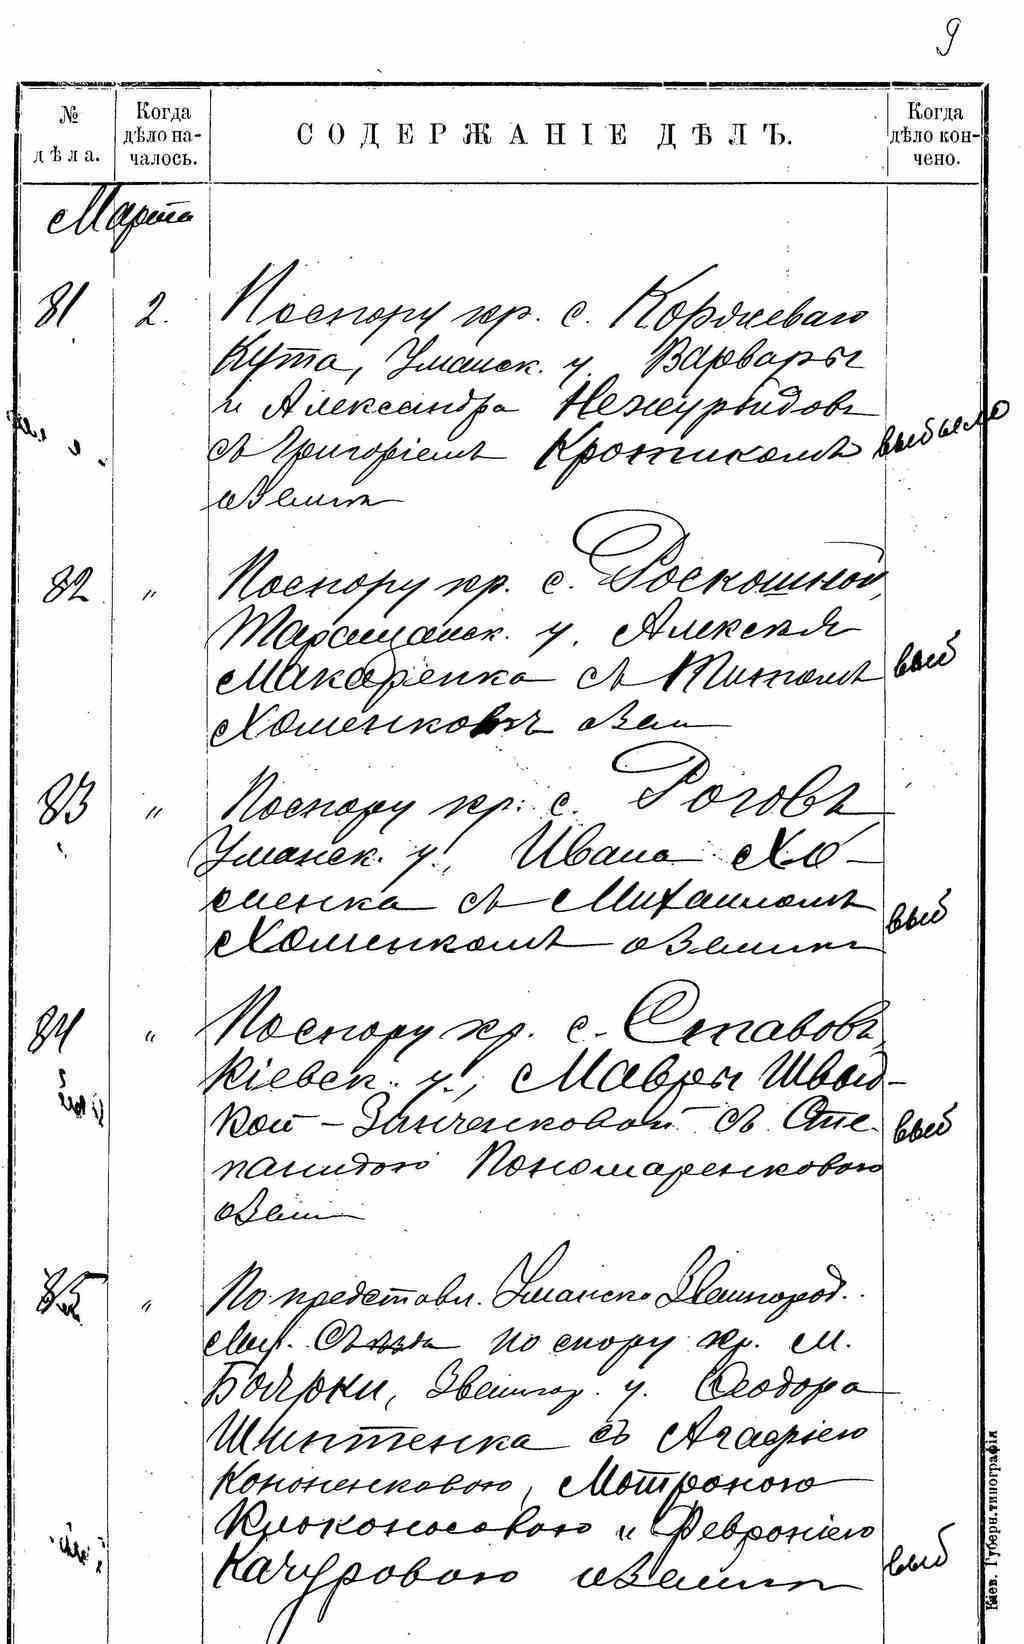 9
№ дѣла.
Когда дѣло началось.
СОДЕРЖАНІЕ ДѢЛЪ.
Когда дѣло кончено.
Марта
81 2. По спору кр. с. Коржеваго
Кута, Уманск. у. Варвары
и Александра
съ Григоріемъ Кротикомъ выбыло
о земли
82 " По спору кр. с. Роскошной,
Таращанск. у. Алексѣя
Макаренка съ Титомъ выб
Хоменковъ о зем
83 " По спору кр. с. Роговъ
Уманск. у., Ивана Хо-
менка съ Михаиломъ
Хоменкомъ о земли выб
84 " По спору кр. с. Ставовъ,
Кіевск. у., Мавры Швыд-
кой-Зинченковой съ Сте-
панидою Пономаренковою выб
о зем
85 " По представл. Уманско Звенигород.
Мир. Съѣзда по спору кр. м.
Боярки, Звенигор. у. Ѳеодора
съ Агафіею
Кононенковою, Мотроною
Клоконосовою и Февроніею
Качуровою о земли выб
Кіев. Губерн. типографія